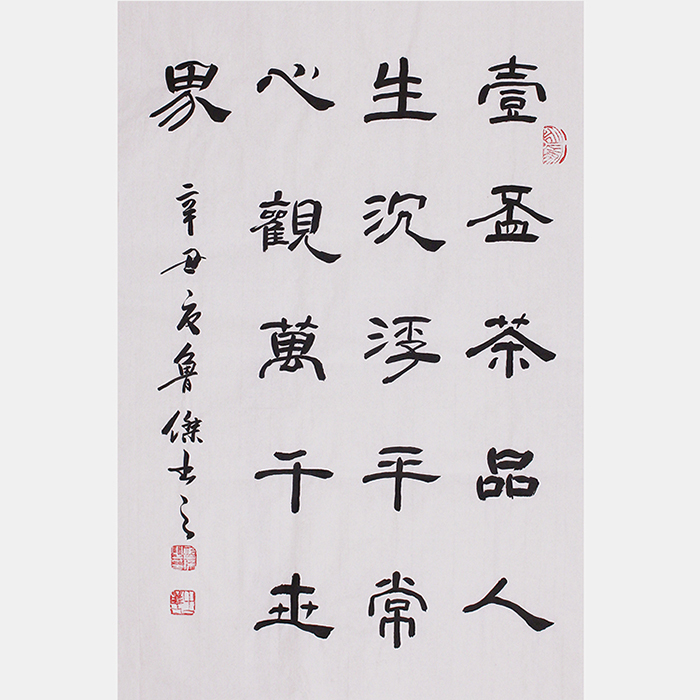 壹盃茶品人
生沉浮平常
心觀萬千世
界
辛丑 魯傑書